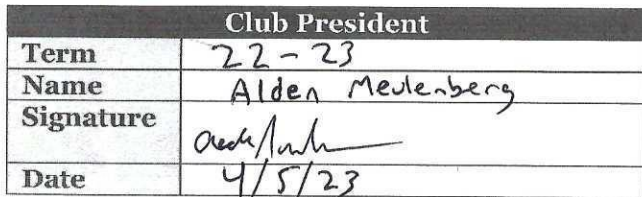 Club President
Term 22-23
Name Alden Meulenberg
Signature
Date 4/5/23